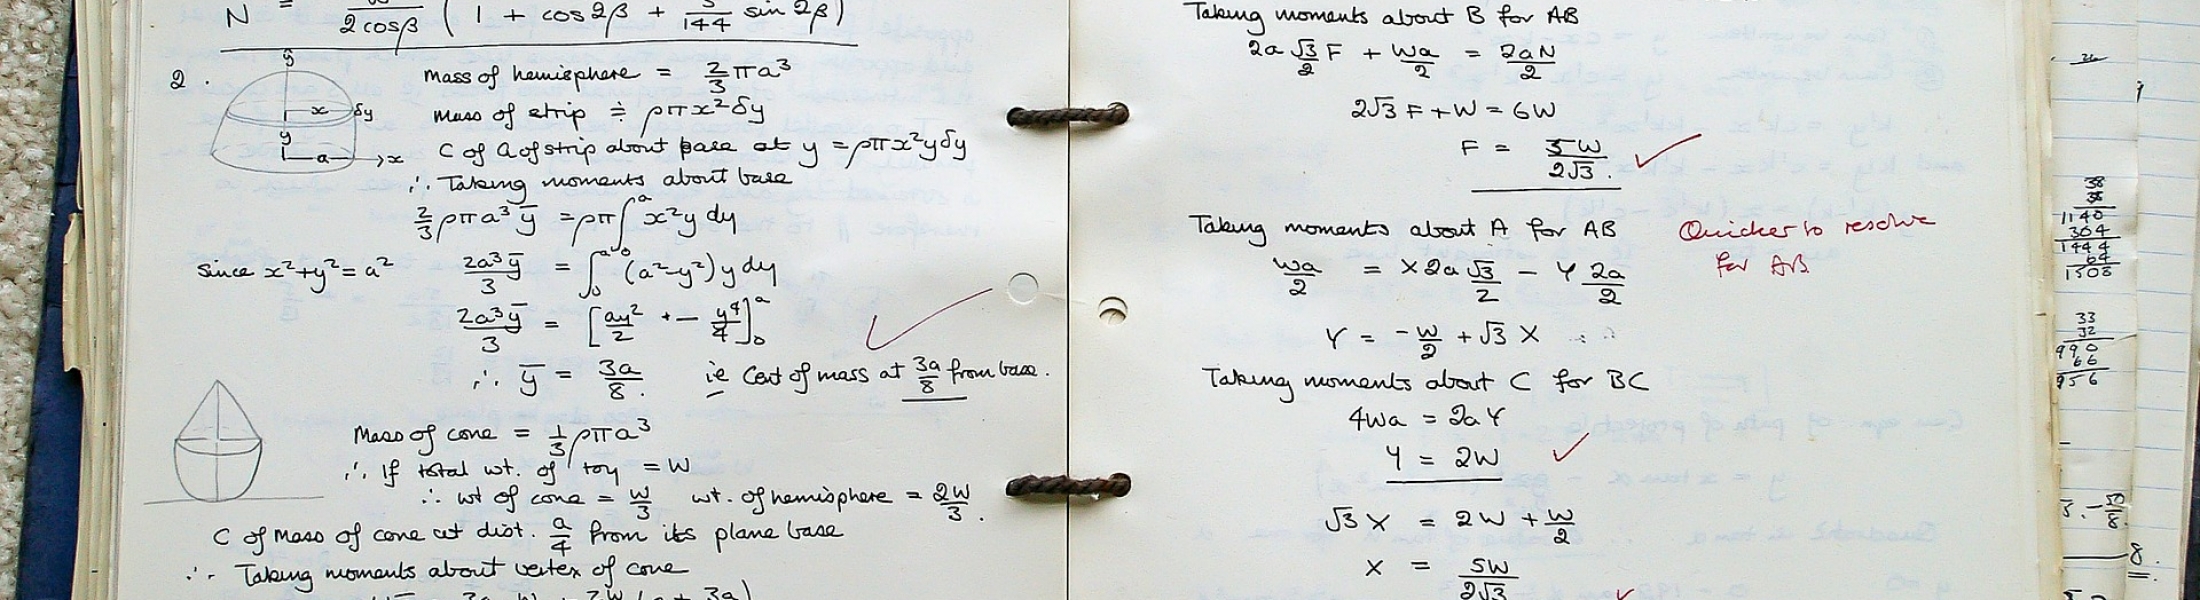 N = w/2cosβ (1 + cos2β + 5/144 sin 2β)
2.
ŷ
x δy
y
a → x
Mass of hemisphere = 2/3 πa³
Mass of strip ≑ ρπx²δy
C of G of strip about base at y = ρπx²yδy
∴ Taking moments about base
2/3 ρπa³ȳ = ρπ∫₀ᵃ x²y dy
Since x²+y²=a² 2a³ȳ/3 = ∫₀ᵃ (a²-y²)y dy
2a³ȳ/3 = [ay²/2 - y⁴/4]₀ᵃ
∴ ȳ = 3a/8. ie Cent of mass at 3a/8 from base.
Mass of cone = 1/3 ρπa³
∴ If total wt. of toy = W
∴ wt of cone = W/3 wt. of hemisphere = 2W/3.
C of Mass of cone at dist. a/4 from its plane base
∴ Taking moments about vertex of cone
Taking moments about B for AB
2a √3/2 F + Wa/2 = 2aN/2
2√3 F + W = 6W
F = 5W/2√3.
Taking moments about A for AB
Quicker to resolve
for AB
Wa/2 = X2a √3/2 - Y 2a/2
Y = -W/2 + √3 X
Taking moments about C for BC
4Wa = 2aY
Y = 2W
√3 X = 2W + W/2
X = 5W/2√3
38
38
1140
304
1444
64
1508
33
32
990
66
956
8.